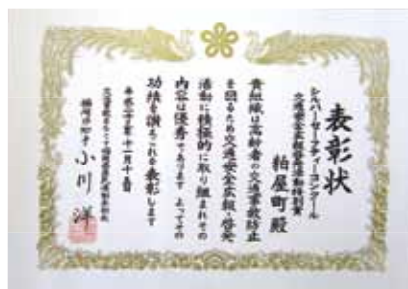 表彰状
シルバーセーフティーコンクール
交通安全広報啓発活動特別賞
粕屋町殿
貴組織は高齢者の交通事故防止
を図るため交通安全広報・啓発
活動に積極的に取り組まれその
内容は優秀であります よってその
功績を讃えこれを表彰します
福岡県知事 小川洋